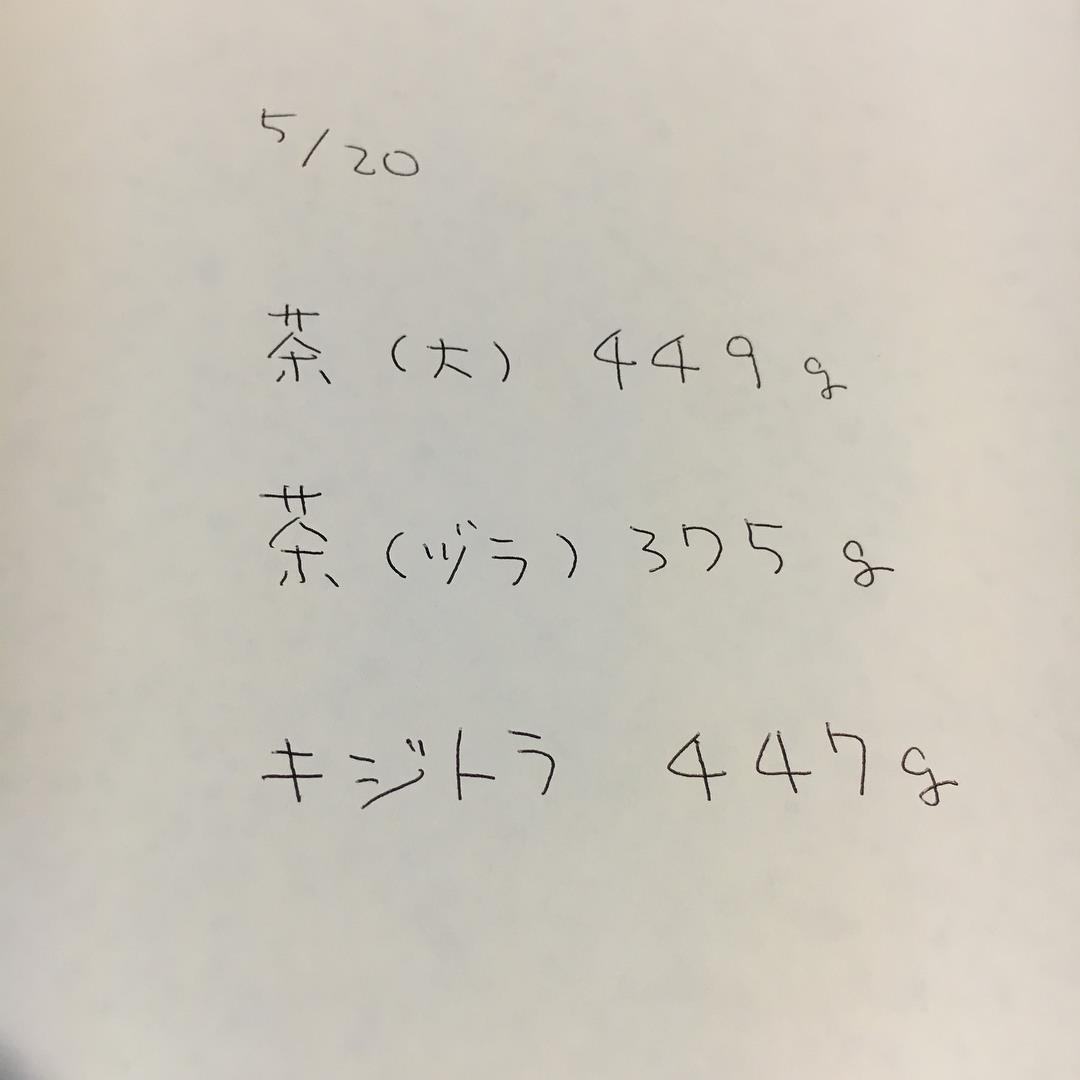 5/20
茶（大） 449g
茶（ヅラ）375g
キジトラ 447g